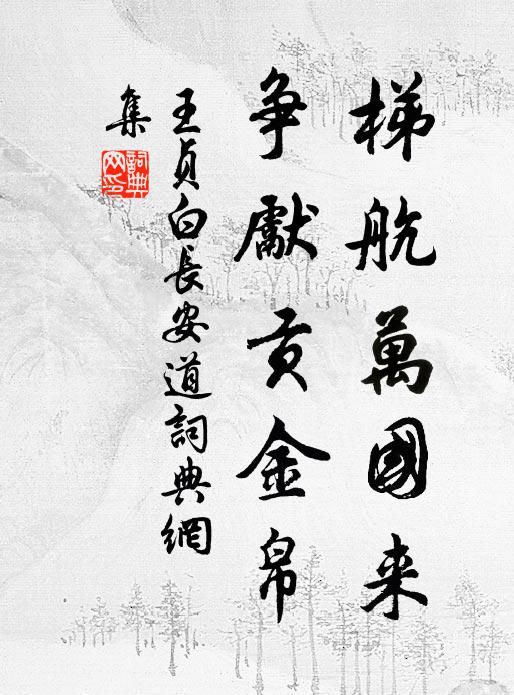 梯航萬國来
争獻貢金帛
王貞白長安道詞典網
集
詞典
网印